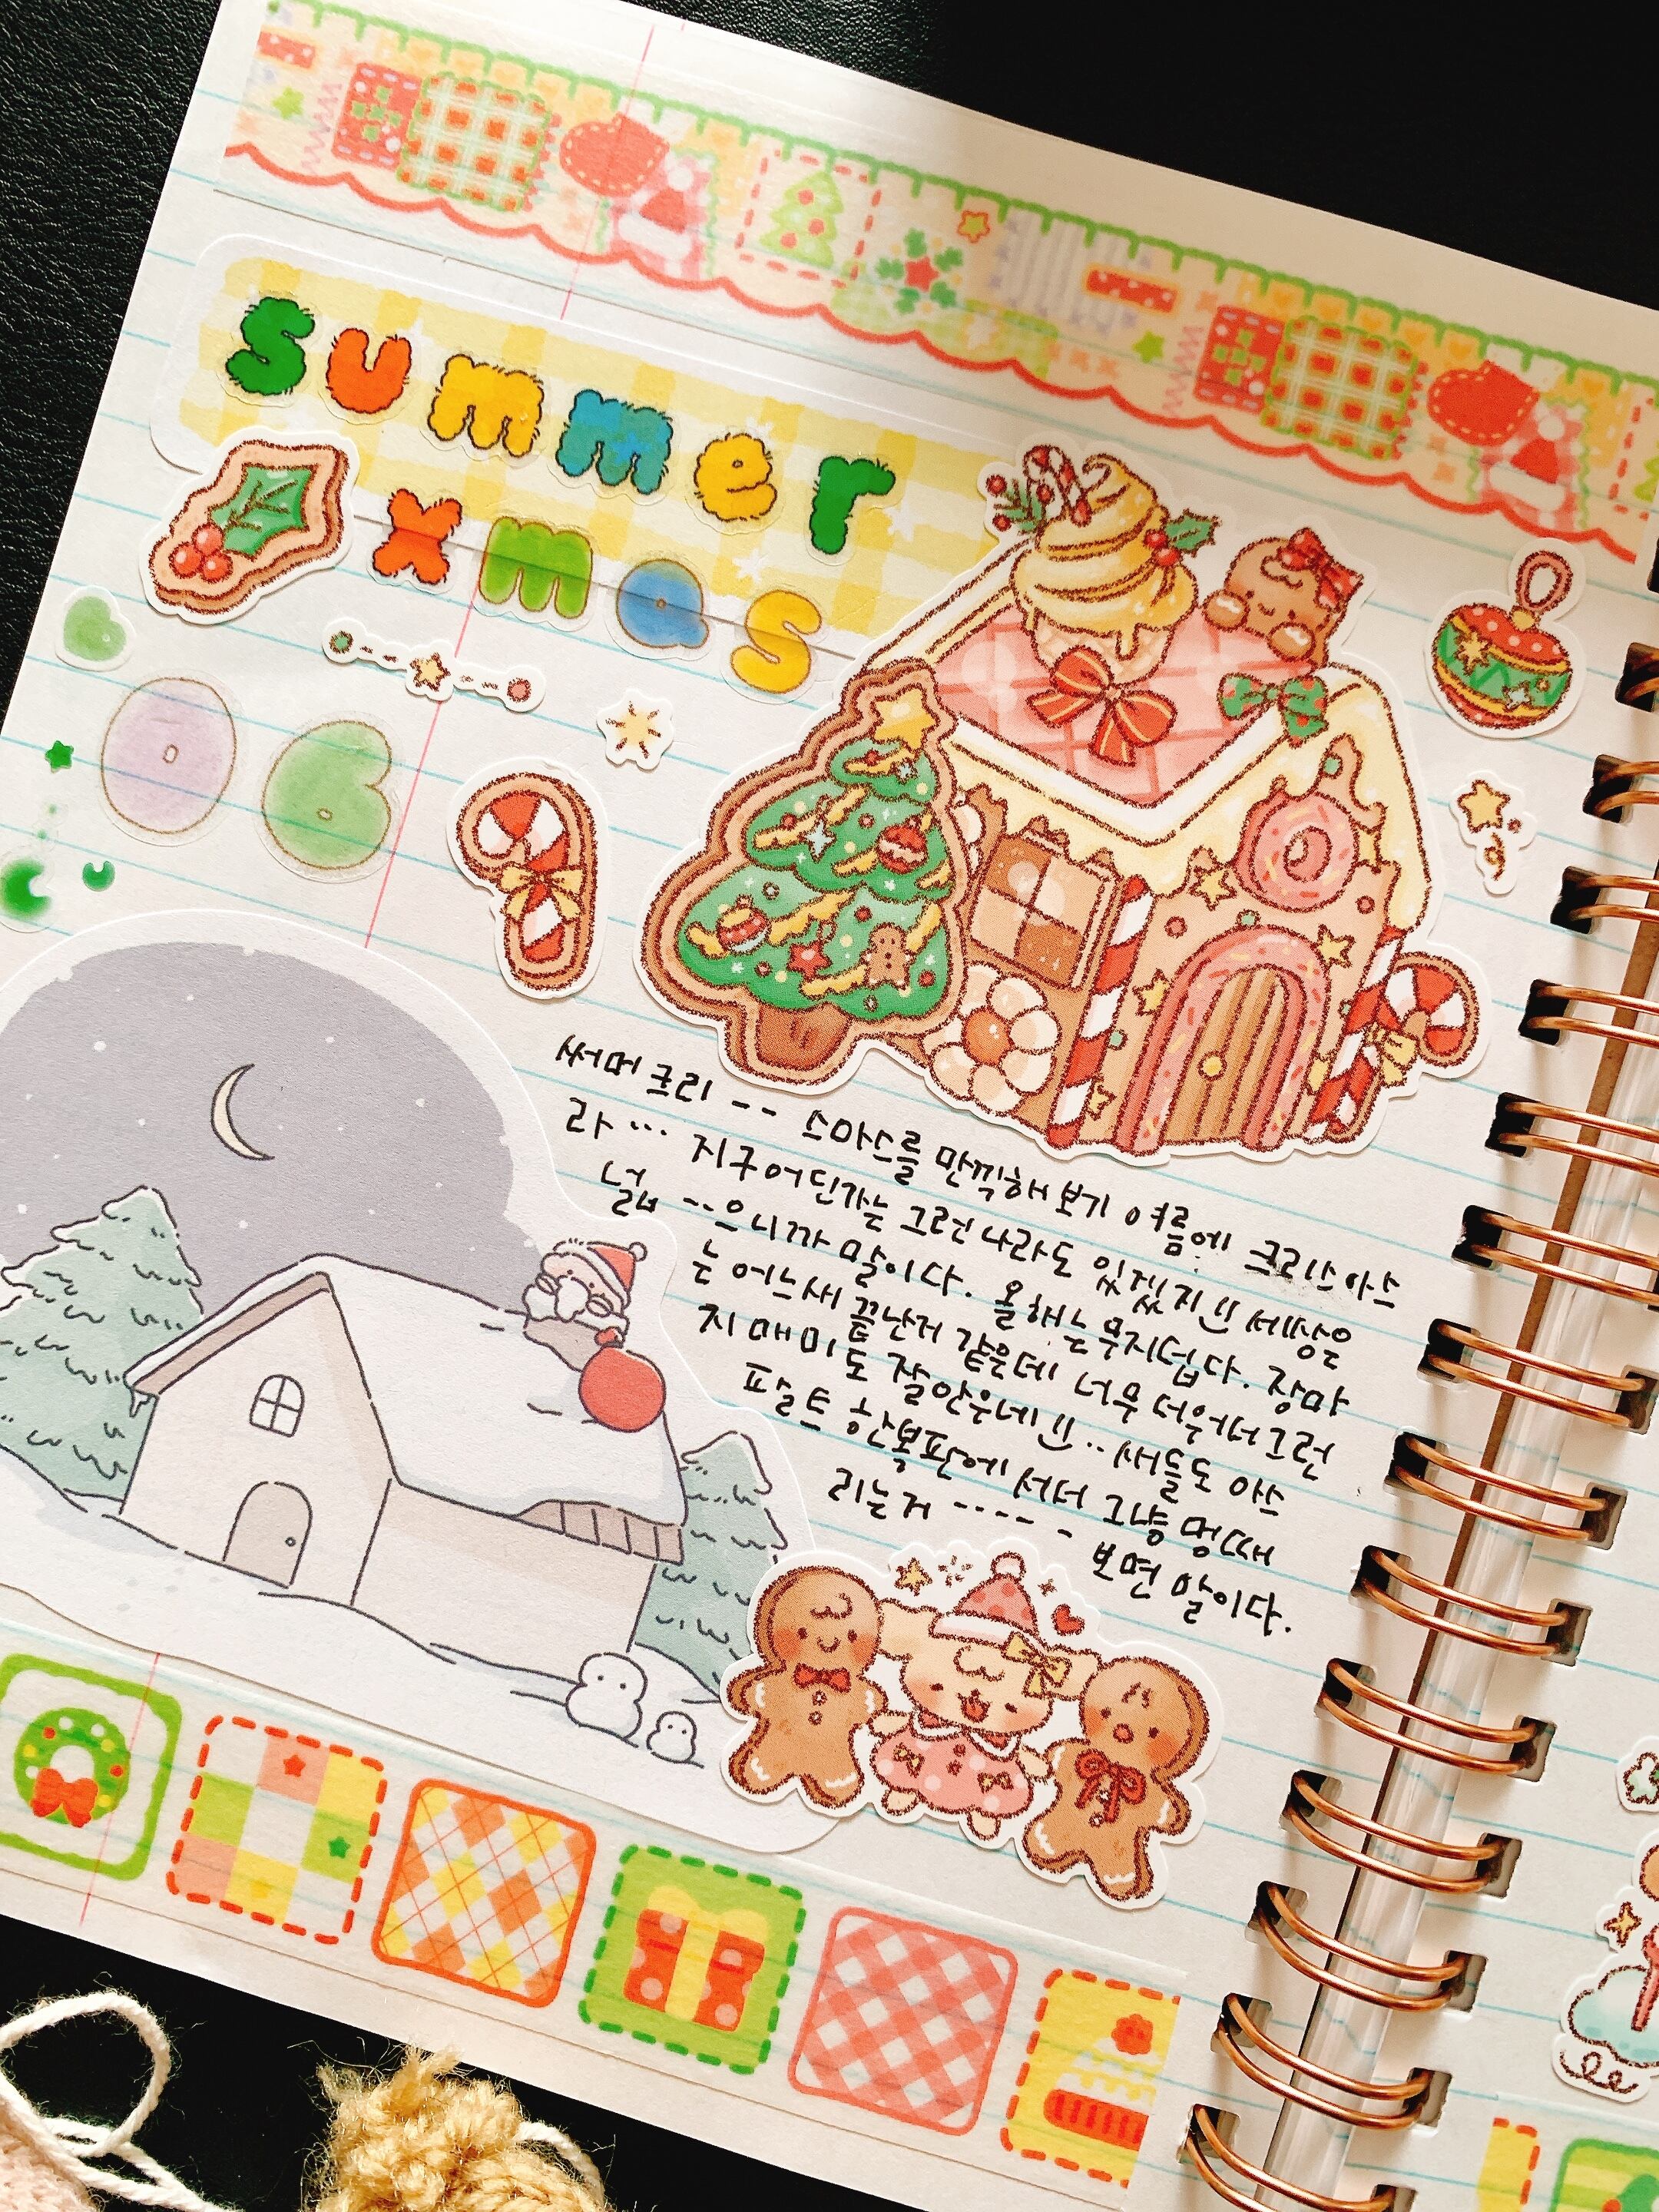 summer
xmas
06
써머 크리 -- 스마스를 만끽해 보기 여름에 크리스마스
라 ... 지구 어딘가는 그런 나라도 있겠지!! 세상은
넓 ...으니까 말이다. 올해는 무지 덥다. 장마
는 어느새 끝난거 같은데 너무 더워서 그런
지 매미도 잘 안우네!!.. 새들도 아스
팔트 한복판에 서서 그냥 멍때
리는거 ----- 보면 말이다.